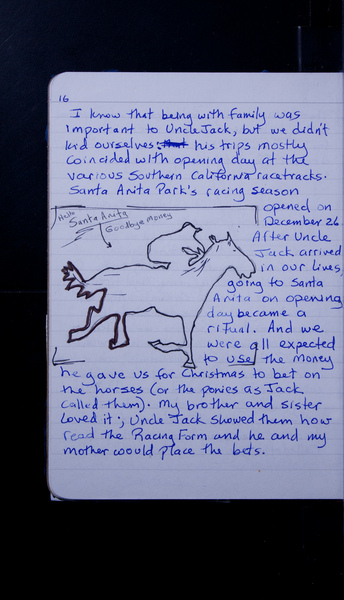 16
I know that being with family was
important to Uncle Jack, but we didn't
kid ourselves; his trips mostly
coincided with opening day at the
various Southern California racetracks.
Santa Anita Park's racing season
opened on
December 26.
After Uncle
Jack arrived
in our lives,
going to Santa
Anita on opening
day became a
ritual. And we
were all expected
to use the money
he gave us for Christmas to bet on
the horses (or the ponies as Jack
called them). My brother and sister
loved it; Uncle Jack showed them how
read the Racing Form and he and my
mother would place the bets.
Hello
Santa Anita
Goodbye money